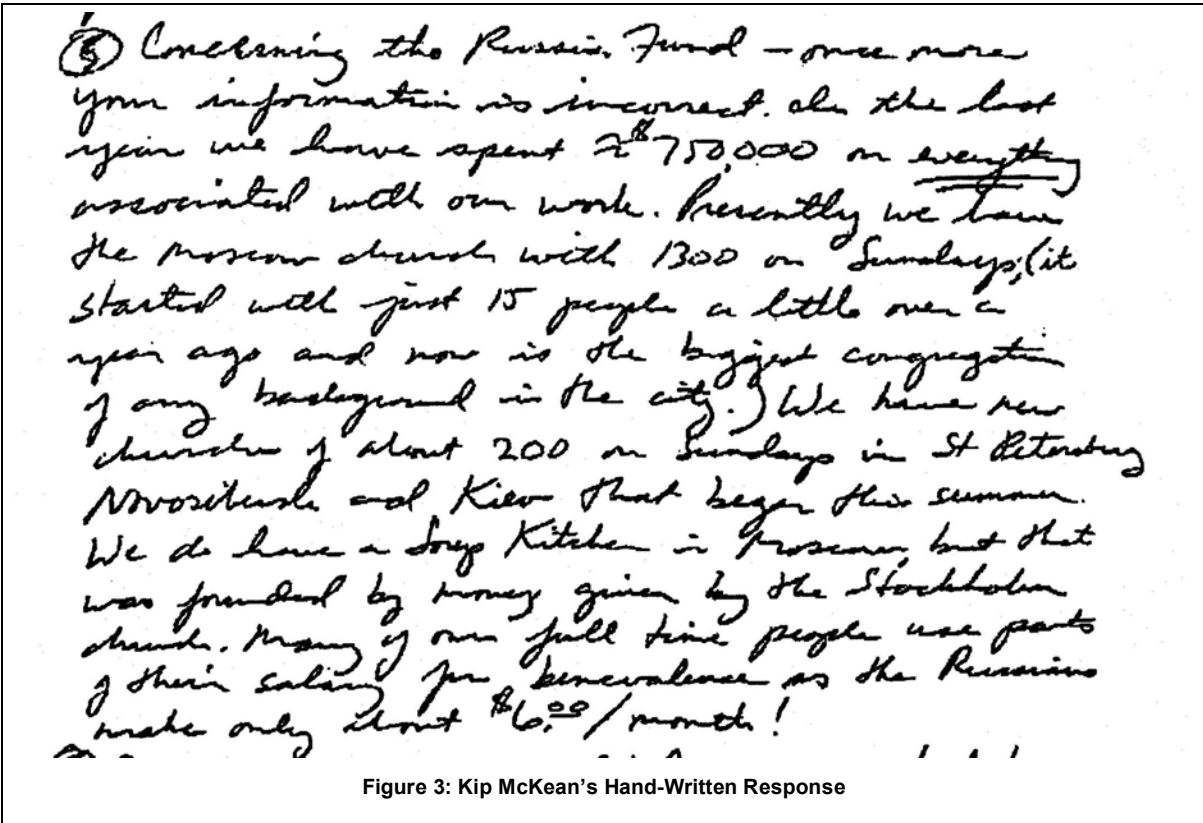 ⑤ Concerning the Russia Fund – once more
your information is incorrect. In the last
year we have spent ≈ $750,000 on everything
associated with our work. Presently we have
the Moscow church with 1300 on Sundays; (it
started with just 15 people a little over a
year ago and now is the biggest congregation
of any background in the city.) We have new
churches of about 200 on Sundays in St Petersburg
Novosibirsk and Kiev that began this summer.
We do have a Soup Kitchen in Moscow, but that
was founded by money given by the Stockholm
church. Many of our full time people use parts
of their salary for benevalence as the Russians
make only about $6.00/month!
Figure 3: Kip McKean's Hand-Written Response